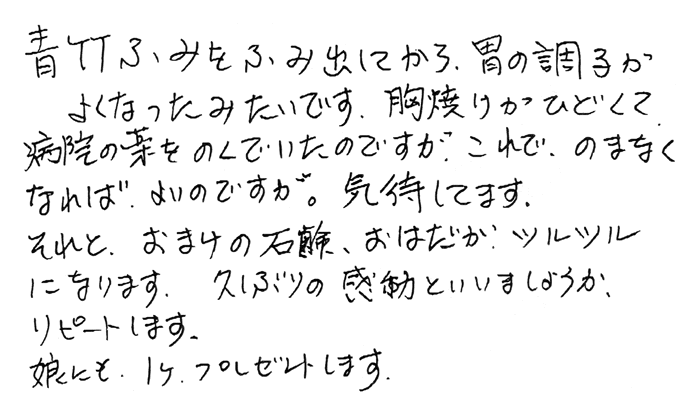 青竹ふみをふみ出してから、胃の調子が
よくなったみたいです。胸焼けがひどくて、
病院の薬をのんでいたのですが、これで、のまなく
なれば、よいのですが。気待してます。
それと、おまけの石鹸、おはだが、ツルツル
になります。久しぶりの感動といいましょうか、
リピートします。
娘にも、1ケ、プレゼントします。